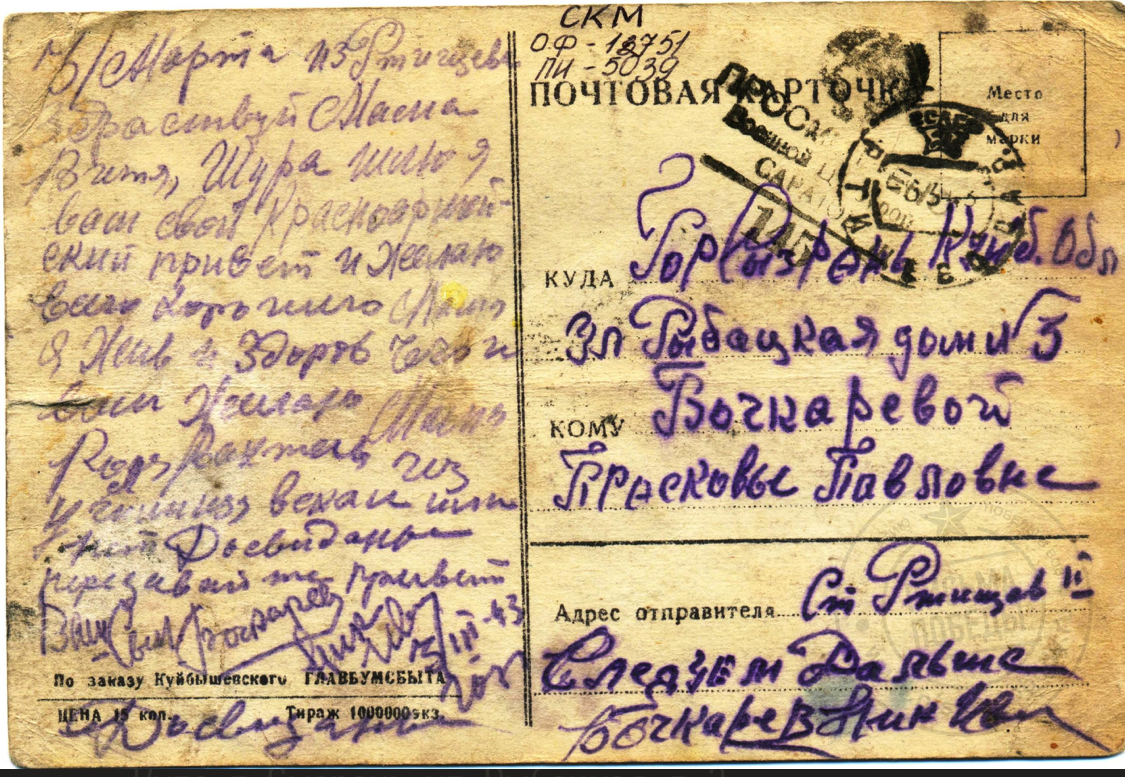 СКМ
ОФ-12751
ПИ-5039
ПОЧТОВАЯ КАРТОЧКА
Место
для
марки
ПРОСМОТРЕНО
Военной Цензурой
САРАТОВ
145
КУДА Гор Сызрань Куйб. Обл
Ул Рыбацкая дом N 3
КОМУ Бочкаревой
Прасковье Павловне
Адрес отправителя Ст Ртищев II
Следуем Дальше
Бочкарев Ник Ив
15/Марта из Ртищева
Здраствуй Мама
Витя, Шура шлю я
вам свой Красноармей-
ский привет и Желаю
всего хорошего Мама
я Жив и Здоров чего и
вам Желаю Мама
Досвиданье
передавай привет
Ваш Сын Бочкарев
Ник Ив
15/III-43
По заказу Куйбышевского ГЛАВБУМСБЫТА
ЦЕНА 15 коп. Тираж 1000000 экз.
Досвиданье